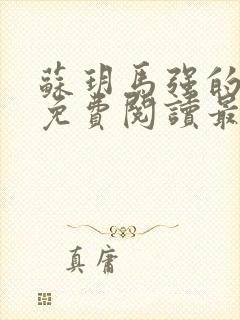 蘇玥馬强的
免費閱讀最
真庸